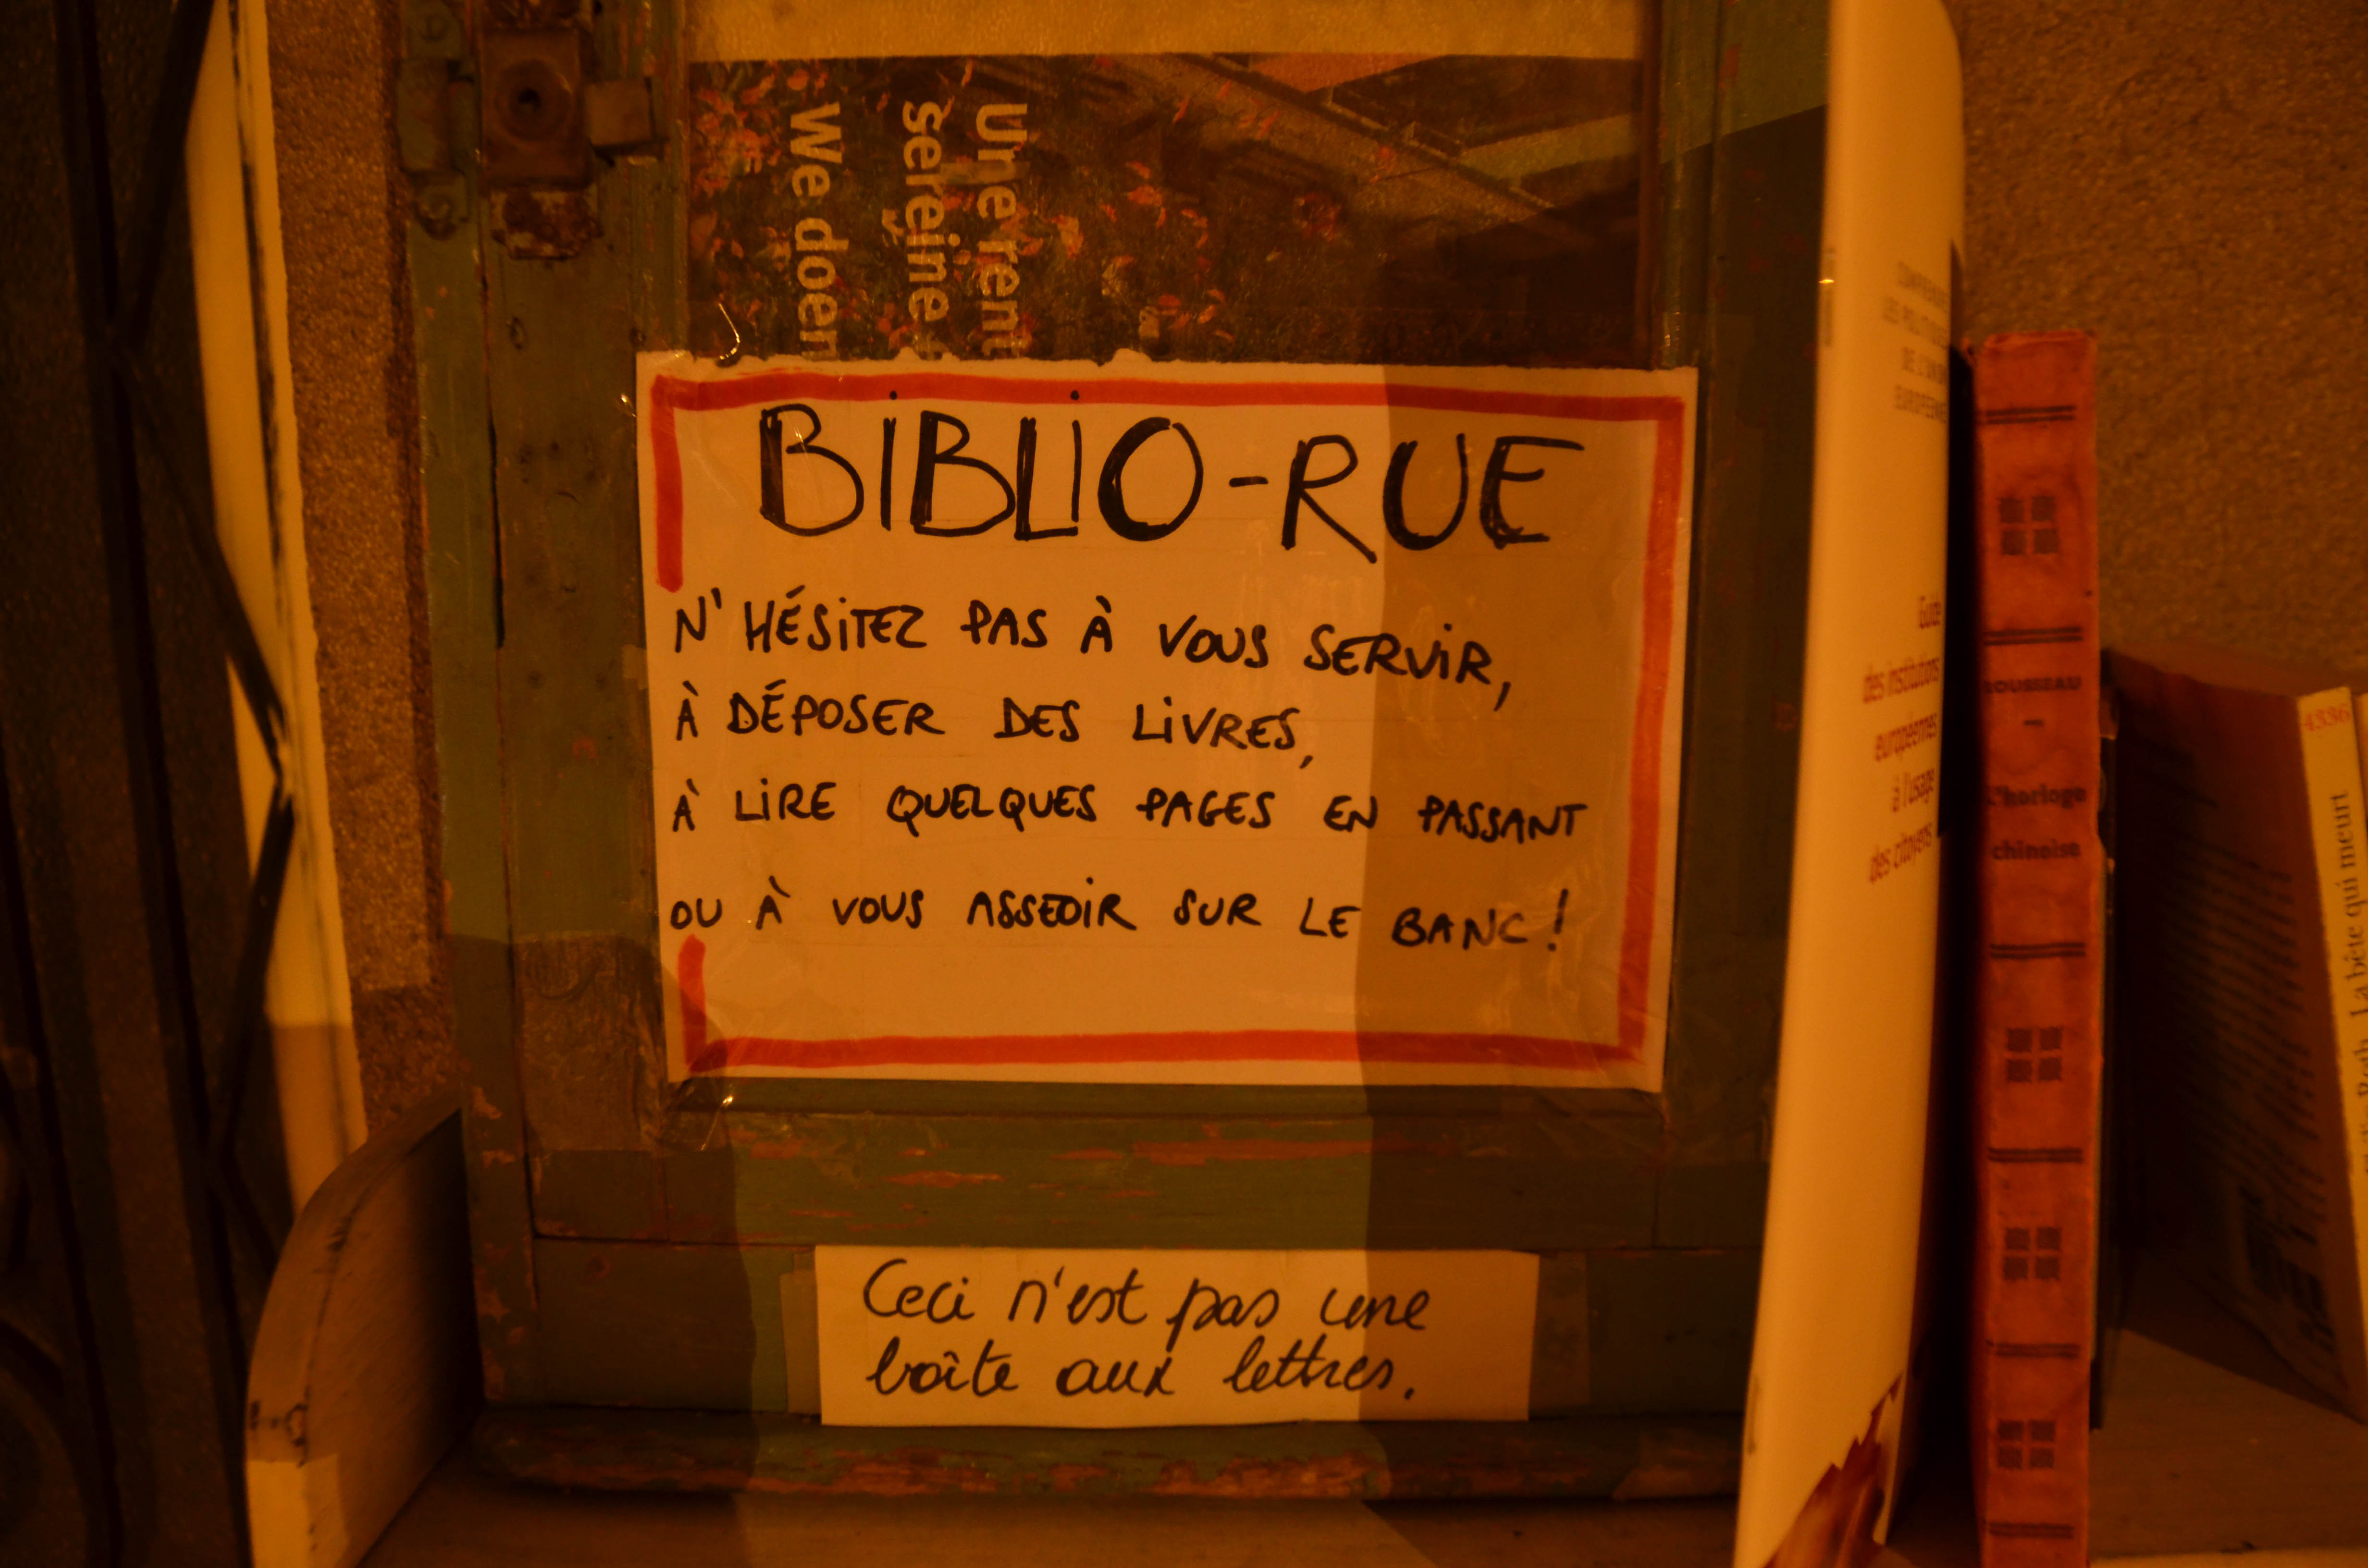 Une rent
sereine
We doen
BIBLIO-RUE
N'HÉSITEZ PAS À VOUS SERVIR,
À DÉPOSER DES LIVRES,
À LIRE QUELQUES PAGES EN PASSANT
OU À VOUS ASSEOIR SUR LE BANC !
Ceci n'est pas une
boîte aux lettres.
Guide
des institutions
européennes
à l'usage
des citoyens
ROUSSEAU
-
L'horloge
chinoise
4336
La bête qui meurt